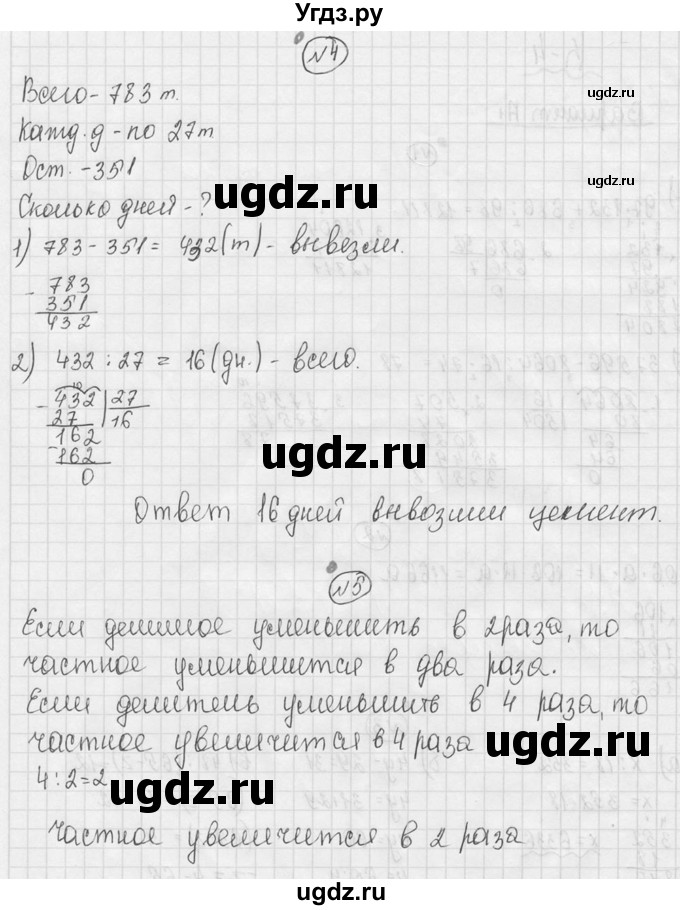 Угдз.ру
№4
ugdz.ru
Всего - 783 т.
Кажд. д - по 27 т
ugdz.ru
Ост. - 351
ugdz.ru
Сколько дней - ?
1) 783 - 351 = 432 (т) - вывезли.
- 783
351
432
2) 432 : 27 = 16 (дн.) - всего.
- 432 | 27
27 16
162
- 162
0
ugdz.ru
Ответ 16 дней вывозили цемент.
№5
ugdz.ru
Если делимое уменьшить в 2 раза, то
частное уменьшится в два раза.
Если делитель уменьшить в 4 раза, то
частное увеличится в 4 раза
ugdz.ru
4 : 2 = 2
ugdz.ru
Частное увеличится в 2 раза
ugdz.ru